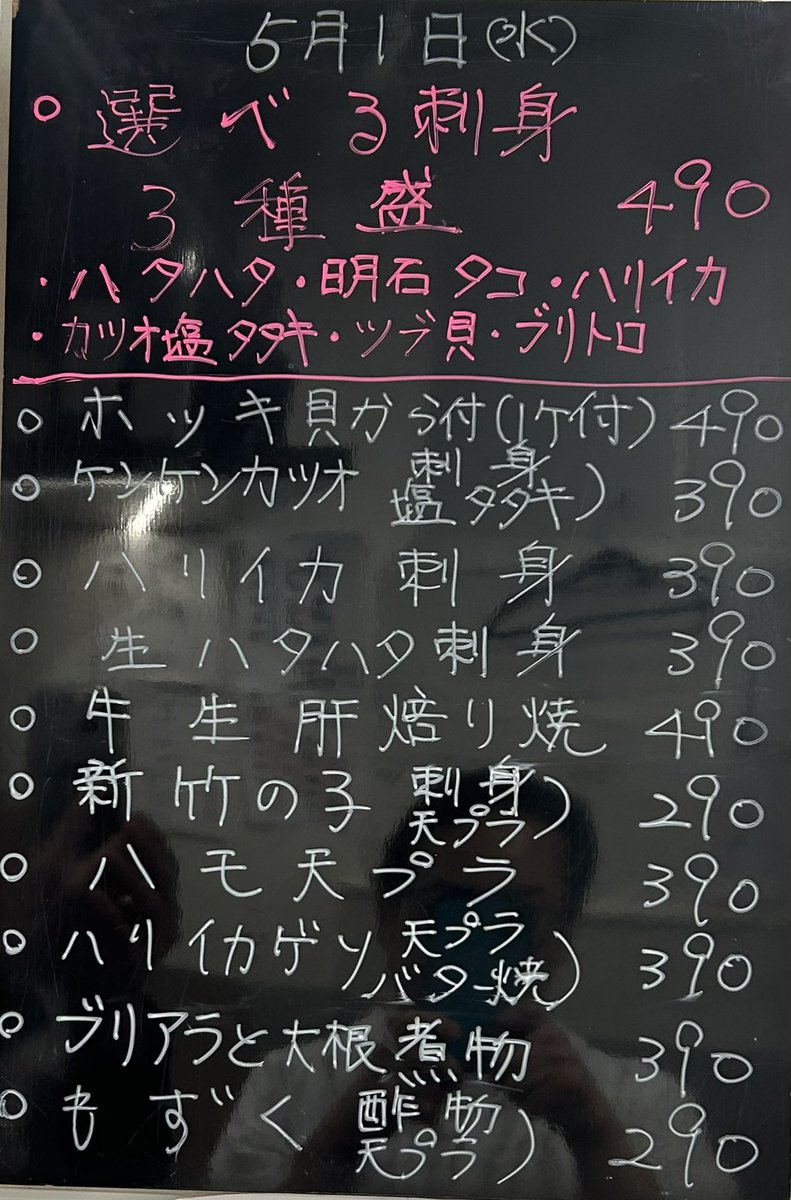 5月1日(水)
○ 選べる刺身
3種盛 490
・ハタハタ・明石タコ・ハリイカ
・カツオ塩タタキ・ツブ貝・ブリトロ
○ ホッキ貝から付(1ケ付) 490
○ ケンケンカツオ 刺身 塩タタキ) 390
○ ハリイカ 刺身 390
○ 生ハタハタ刺身 390
○ 牛生肝焙り焼 490
○ 新竹の子 刺身 天プラ) 290
○ ハモ天プラ 390
○ ハリイカゲソ 天プラ バター焼) 390
○ ブリアラと大根煮物 390
○ もずく 酢物 天プラ) 290